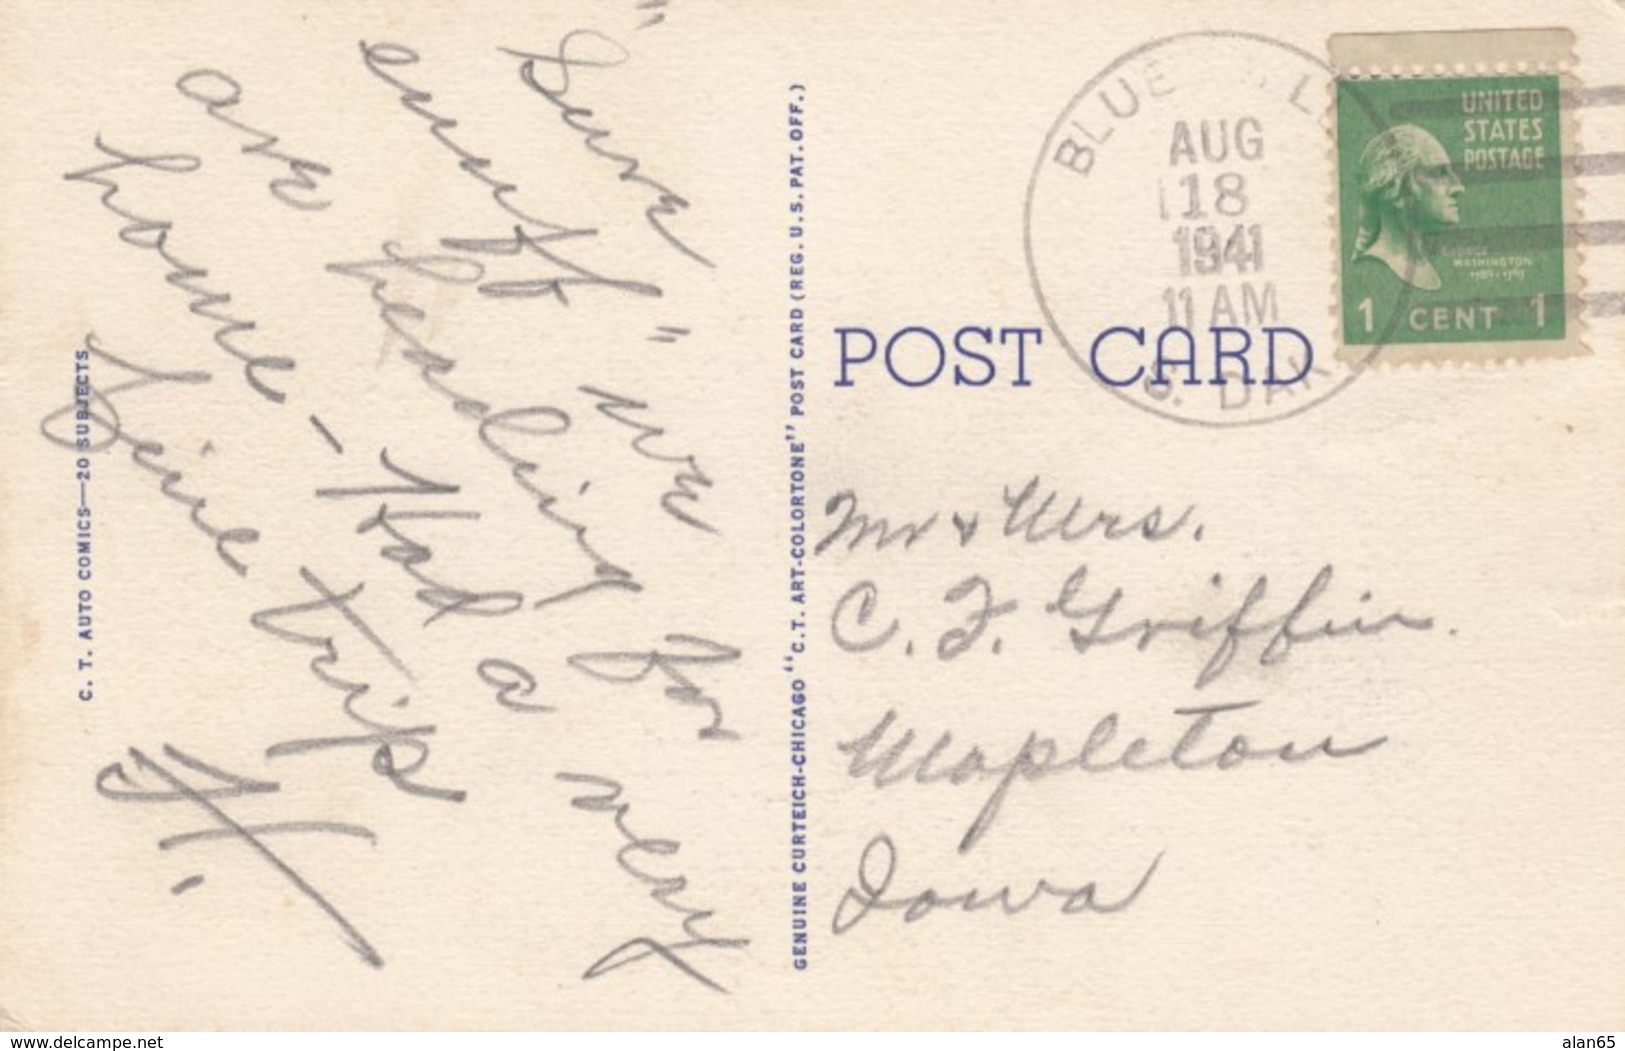 "Sure
enuff" we
are heading for
home - Had a very
fine trip
H.
C. T. AUTO COMICS—20 SUBJECTS
GENUINE CURTEICH-CHICAGO "C.T. ART-COLORTONE" POST CARD (REG. U.S. PAT. OFF.)
POST CARD
BLUE
AUG
18
1941
11 AM
S. DAK
UNITED
STATES
POSTAGE
GEORGE
WASHINGTON
1 CENT 1
Mr & Mrs.
C. F. Griffin.
Mapleton
Iowa
www.delcampe.net
alan65